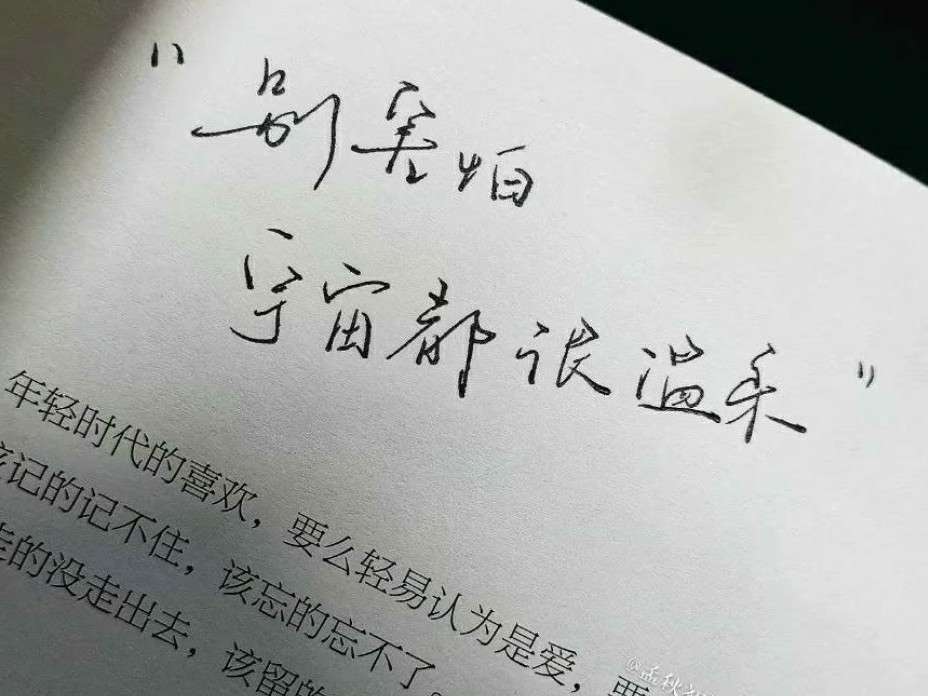 "别害怕
宇宙都很温柔"
年轻时代的喜欢，要么轻易认为是爱，要
记的记不住，该忘的忘不了。
的没走出去，该留的